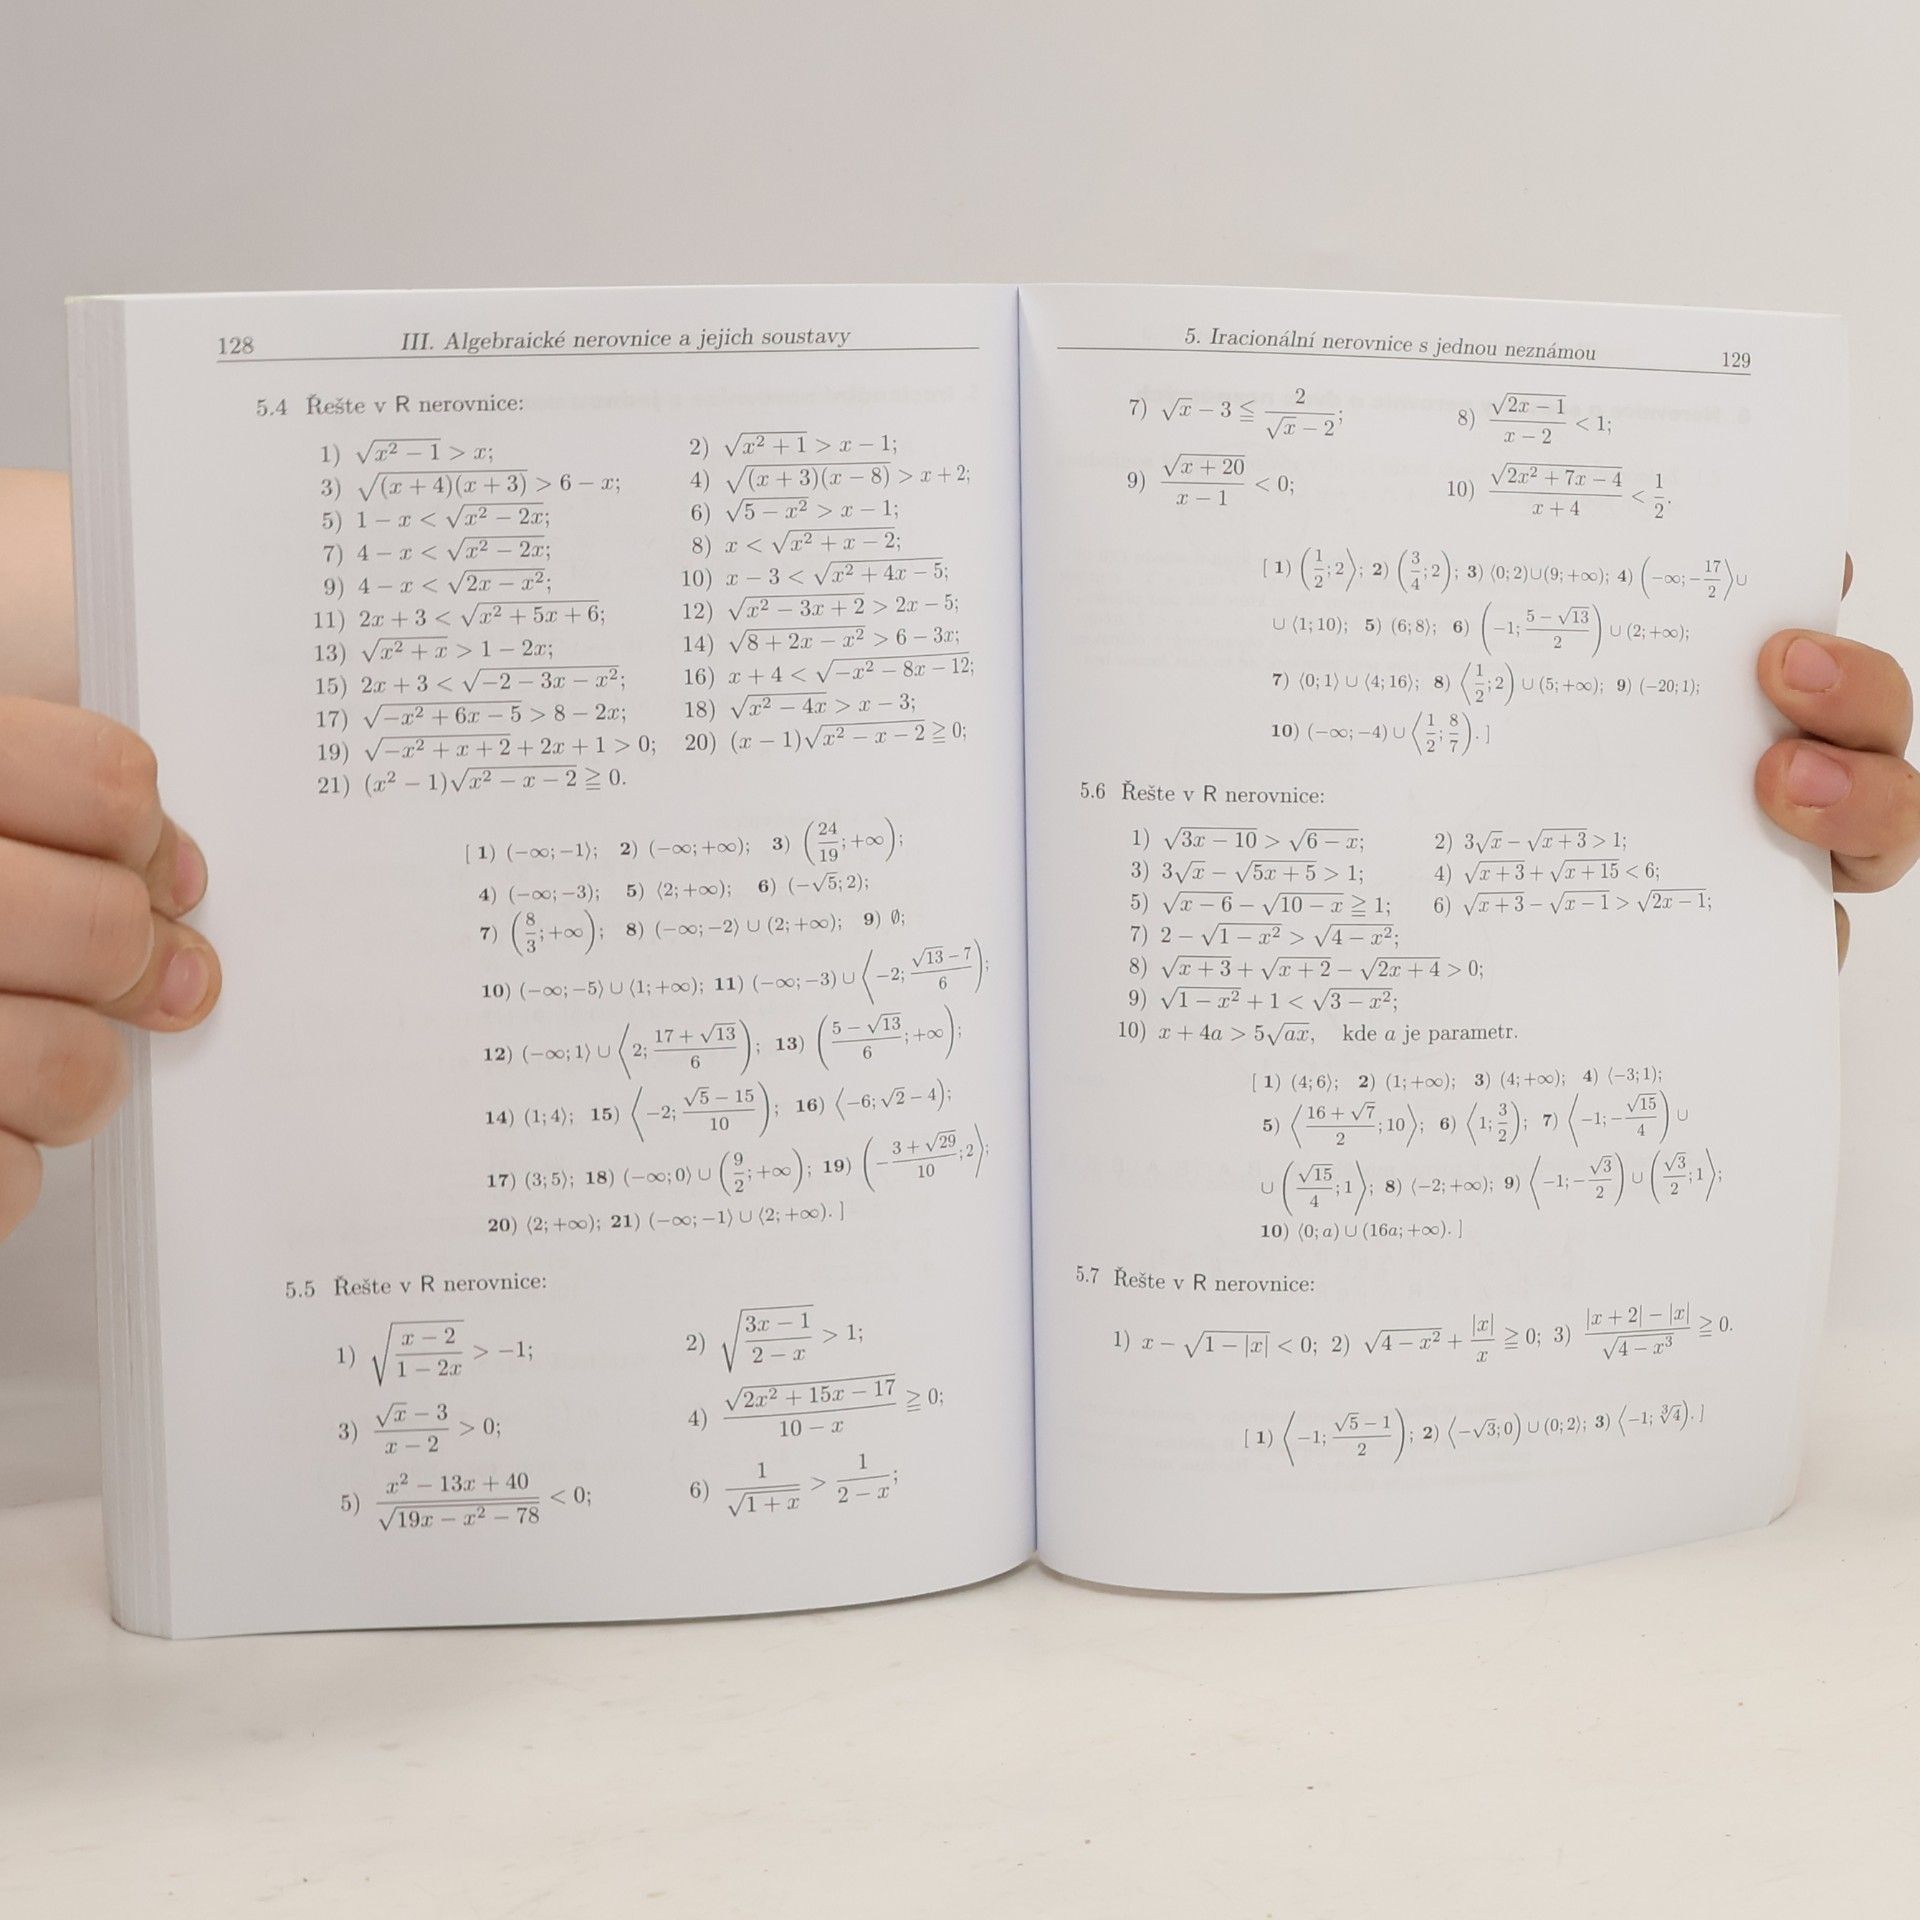 128 III. Algebraické nerovnice a jejich soustavy
5.4 Řešte v R nerovnice:
1) √(x² − 1) > x; 2) √(x² + 1) > x − 1;
3) √((x + 4)(x + 3)) > 6 − x; 4) √((x + 3)(x − 8)) > x + 2;
5) 1 − x < √(x² − 2x); 6) √(5 − x²) > x − 1;
7) 4 − x < √(x² − 2x); 8) x < √(x² + x − 2);
9) 4 − x < √(2x − x²); 10) x − 3 < √(x² + 4x − 5);
11) 2x + 3 < √(x² + 5x + 6); 12) √(x² − 3x + 2) > 2x − 5;
13) √(x² + x) > 1 − 2x; 14) √(8 + 2x − x²) > 6 − 3x;
15) 2x + 3 < √(−2 − 3x − x²); 16) x + 4 < √(−x² − 8x − 12);
17) √(−x² + 6x − 5) > 8 − 2x; 18) √(x² − 4x) > x − 3;
19) √(−x² + x + 2) + 2x + 1 > 0; 20) (x − 1)√(x² − x − 2) ≧ 0;
21) (x² − 1)√(x² − x − 2) ≧ 0.
[ 1) (−∞; −1⟩; 2) (−∞; +∞); 3) (24/19; +∞);
4) (−∞; −3); 5) ⟨2; +∞); 6) (−√5; 2);
7) (8/3; +∞); 8) (−∞; −2⟩ ∪ (2; +∞); 9) ∅;
10) (−∞; −5⟩ ∪ ⟨1; +∞); 11) (−∞; −3) ∪ ⟨−2; (√13 − 7)/6);
12) (−∞; 1⟩ ∪ ⟨2; (17 + √13)/6); 13) ((5 − √13)/6; +∞);
14) (1; 4⟩; 15) ⟨−2; (√5 − 15)/10); 16) ⟨−6; √2 − 4);
17) (3; 5⟩; 18) (−∞; 0⟩ ∪ (9/2; +∞); 19) (−(3 + √29)/10; 2⟩;
20) ⟨2; +∞); 21) (−∞; −1⟩ ∪ ⟨2; +∞). ]
5.5 Řešte v R nerovnice:
1) √((x − 2)/(1 − 2x)) > −1; 2) √((3x − 1)/(2 − x)) > 1;
3) (√x − 3)/(x − 2) > 0; 4) √(2x² + 15x − 17)/(10 − x) ≧ 0;
5) (x² − 13x + 40)/√(19x − x² − 78) < 0; 6) 1/√(1 + x) > 1/(2 − x);
5. Iracionální nerovnice s jednou neznámou 129
7) √x − 3 ≦ 2/(√x − 2); 8) √(2x − 1)/(x − 2) < 1;
9) √(x + 20)/(x − 1) < 0; 10) √(2x² + 7x − 4)/(x + 4) < 1/2.
[ 1) (1/2; 2⟩; 2) (3/4; 2); 3) ⟨0; 2)∪(9; +∞); 4) (−∞; −17/2⟩∪
∪ ⟨1; 10); 5) (6; 8); 6) (−1; (5 − √13)/2) ∪ (2; +∞);
7) ⟨0; 1⟩ ∪ (4; 16⟩; 8) ⟨1/2; 2) ∪ (5; +∞); 9) (−20; 1);
10) (−∞; −4) ∪ ⟨1/2; 8/7). ]
5.6 Řešte v R nerovnice:
1) √(3x − 10) > √(6 − x); 2) 3√x − √(x + 3) > 1;
3) 3√x − √(5x + 5) > 1; 4) √(x + 3) + √(x + 15) < 6;
5) √(x − 6) − √(10 − x) ≧ 1; 6) √(x + 3) − √(x − 1) > √(2x − 1);
7) 2 − √(1 − x²) > √(4 − x²);
8) √(x + 3) + √(x + 2) − √(2x + 4) > 0;
9) √(1 − x²) + 1 < √(3 − x²);
10) x + 4a > 5√(ax), kde a je parametr.
[ 1) (4; 6⟩; 2) (1; +∞); 3) (4; +∞); 4) ⟨−3; 1);
5) ⟨(16 + √7)/2; 10⟩; 6) ⟨1; 3/2); 7) ⟨−1; −√15/4) ∪
∪ (√15/4; 1⟩; 8) ⟨−2; +∞); 9) ⟨−1; −√3/2) ∪ (√3/2; 1⟩;
10) ⟨0; a) ∪ (16a; +∞). ]
5.7 Řešte v R nerovnice:
1) x − √(1 − |x|) < 0; 2) √(4 − x²) + |x|/x ≧ 0; 3) (|x + 2| − |x|)/√(4 − x³) ≧ 0.
[ 1) ⟨−1; (√5 − 1)/2); 2) ⟨−√3; 0) ∪ (0; 2⟩; 3) ⟨−1; ∛4). ]